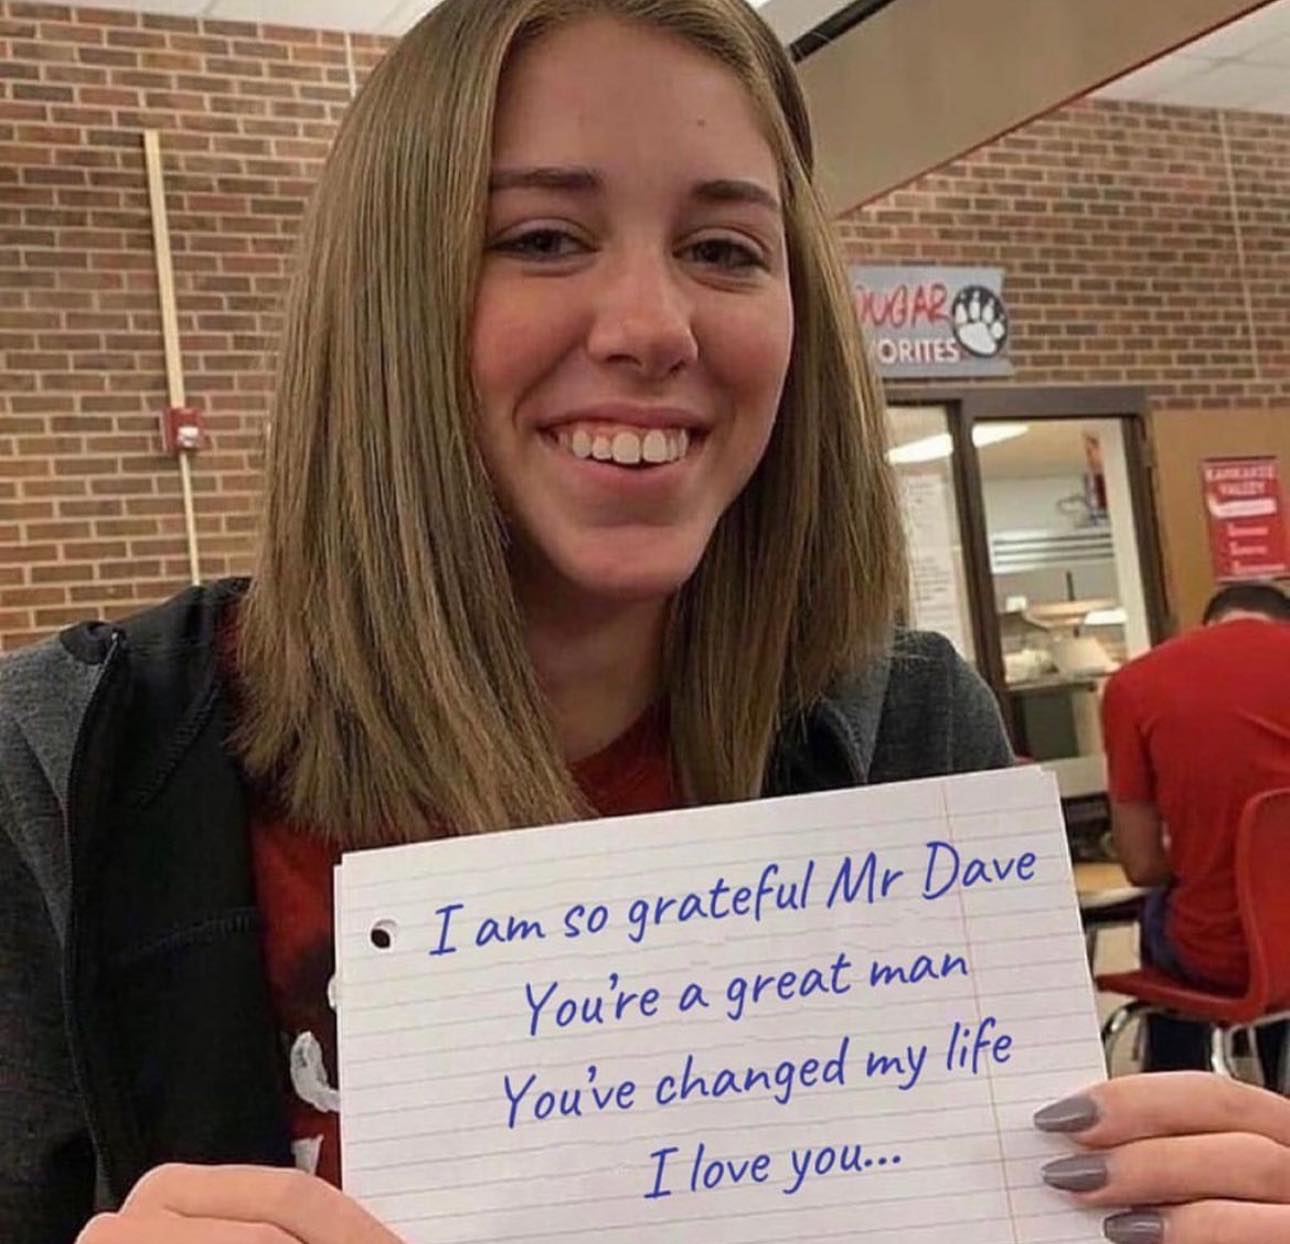 OUGAR
ORITES
KANKAKEE
VALLEY
I am so grateful Mr Dave
You're a great man
You've changed my life
I love you...